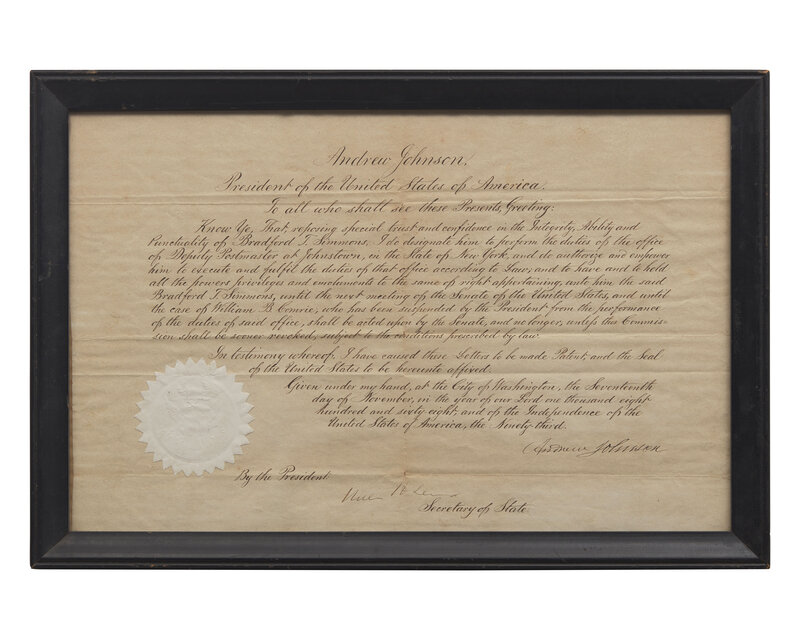 Andrew Johnson,
President of the United States of America.
To all who shall see these Presents, Greeting:
Know Ye, That, reposing special trust and confidence in the Integrity, Ability and
Punctuality of Bradford T. Simmons, I do designate him to perform the duties of the office
of Deputy Postmaster at Johnstown, in the State of New York, and do authorize and empower
him to execute and fulfil the duties of that office according to Law; and to have and to hold
all the powers, privileges and emoluments to the same of right appertaining, unto him the said
Bradford T. Simmons, until the next meeting of the Senate of the United States, and until
the case of William B. Comrie, who has been suspended by the President from the performance
of the duties of said office, shall be acted upon by the Senate, and no longer, unless this Commis-
sion shall be sooner revoked, subject to the conditions prescribed by law.
In testimony whereof, I have caused these Letters to be made Patent, and the Seal
of the United States to be hereunto affixed.
Given under my hand, at the City of Washington, the Seventeenth
day of November, in the year of our Lord one thousand eight
hundred and sixty eight; and of the Independence of the
United States of America, the Ninety-third.
Andrew Johnson
By the President:
Secretary of State.